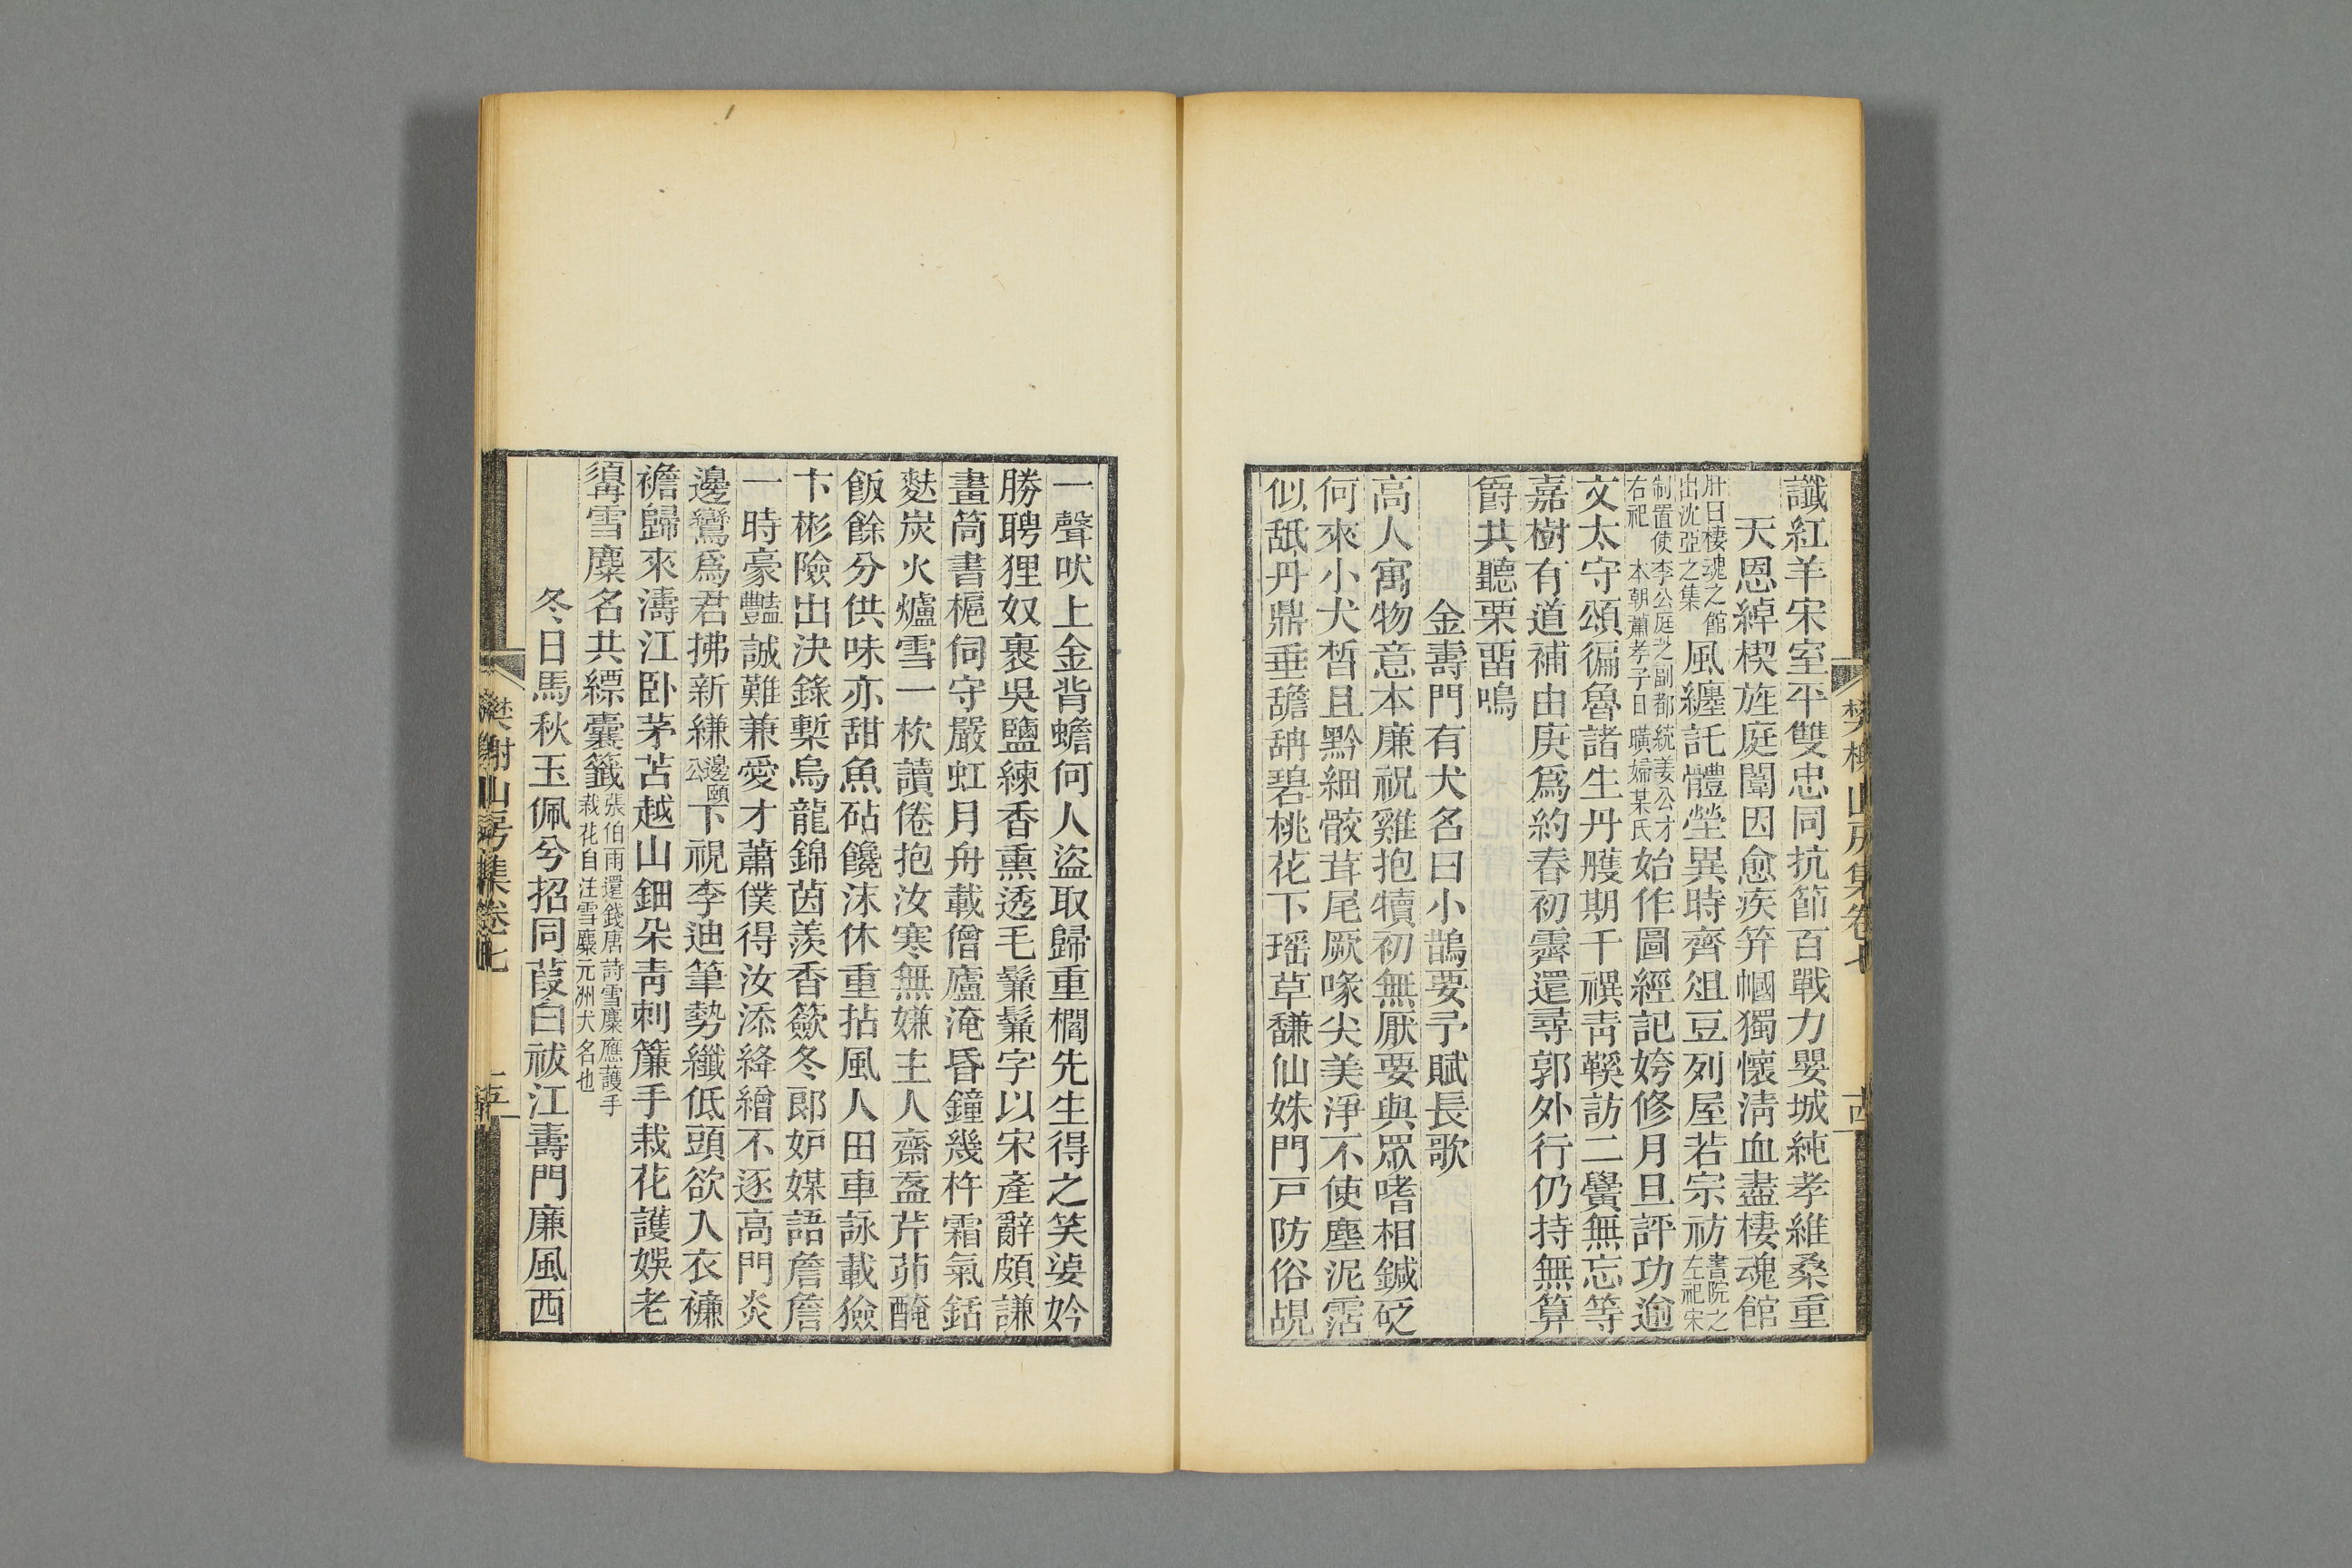 讖紅羊宋室平雙忠同抗節百戰力嬰城純孝維桑重
天恩綽楔旌庭闈因愈疾笄幗獨懷清血盡棲魂館
肝曰棲魂之館
出沈亞之集
風纏託體塋異時齊俎豆列屋若宗祊
書院之
左祀宋
制置使李公庭芝副都統姜公才
右祀本朝蕭孝子日㬻婦某氏
始作圖經記姱修月旦評功逾
文太守頌徧魯諸生丹雘期千禩青鞵訪二黌無忘等
嘉樹有道補由庚爲約春初霽還尋郭外行仍持無算
爵共聽栗畱鳴
金壽門有犬名曰小鵲要予賦長歌
高人寓物意本廉祝雞抱犢初無厭要與眾嗜相鍼砭
何來小犬皙且黔細骹茸尾厥喙尖美淨不使塵泥霑
似舐丹鼎垂舚舑碧桃花下瑶草馦仙姝門戸防俗覘
樊榭山房集卷七
古
一聲吠上金背蟾何人盜取歸重櫩先生得之笑婆妗
勝聘狸奴裹吳鹽練香熏透毛鬑鬑字以宋產辭頗謙
畫筒書梔伺守嚴虹月舟載僧廬淹昏鐘幾杵霜氣銛
麩炭火爐雪一杴讀倦抱汝寒無嫌主人齋盋芹茆醃
飯餘分供味亦甜魚砧饞沫休重拈風人田車詠載獫
卞彬險出決錄槧烏龍錦茵羨香籢冬郞妒媒語詹詹
一時豪豔誠難兼愛才蕭僕得汝添絳繒不逐高門炎
邊鸞爲君拂新縑
邊頤
公
下視李迪筆勢纖低頭欲入衣襜
襜歸來濤江臥茅苫越山鈿朵靑刺簾手栽花護娛老
鬚雪麋名共縹囊籤
張伯雨還錢唐詩雪麋應護手
栽花自注雪麋元洲犬名也
冬日馬秋玉佩兮招同葭白祓江壽門廉風西
樊榭山房集卷七